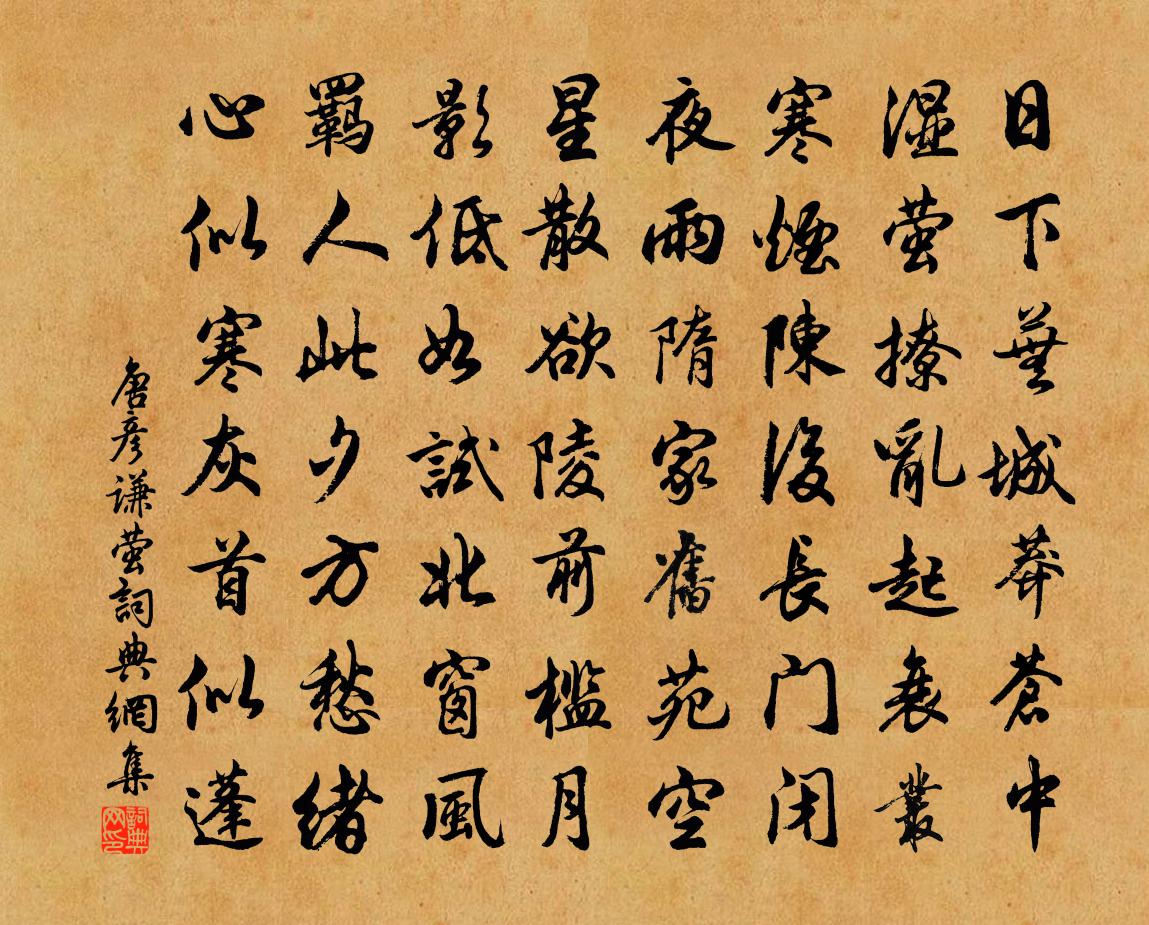 日下蕪城莽蒼中
湿萤撩亂起衰叢
寒煙陳後長门闭
夜雨隋家舊苑空
星散欲陵前槛月
影低如試北窗風
羁人此夕方愁緒
心似寒灰首似蓬
唐彦謙萤詞典網集
詞典网印